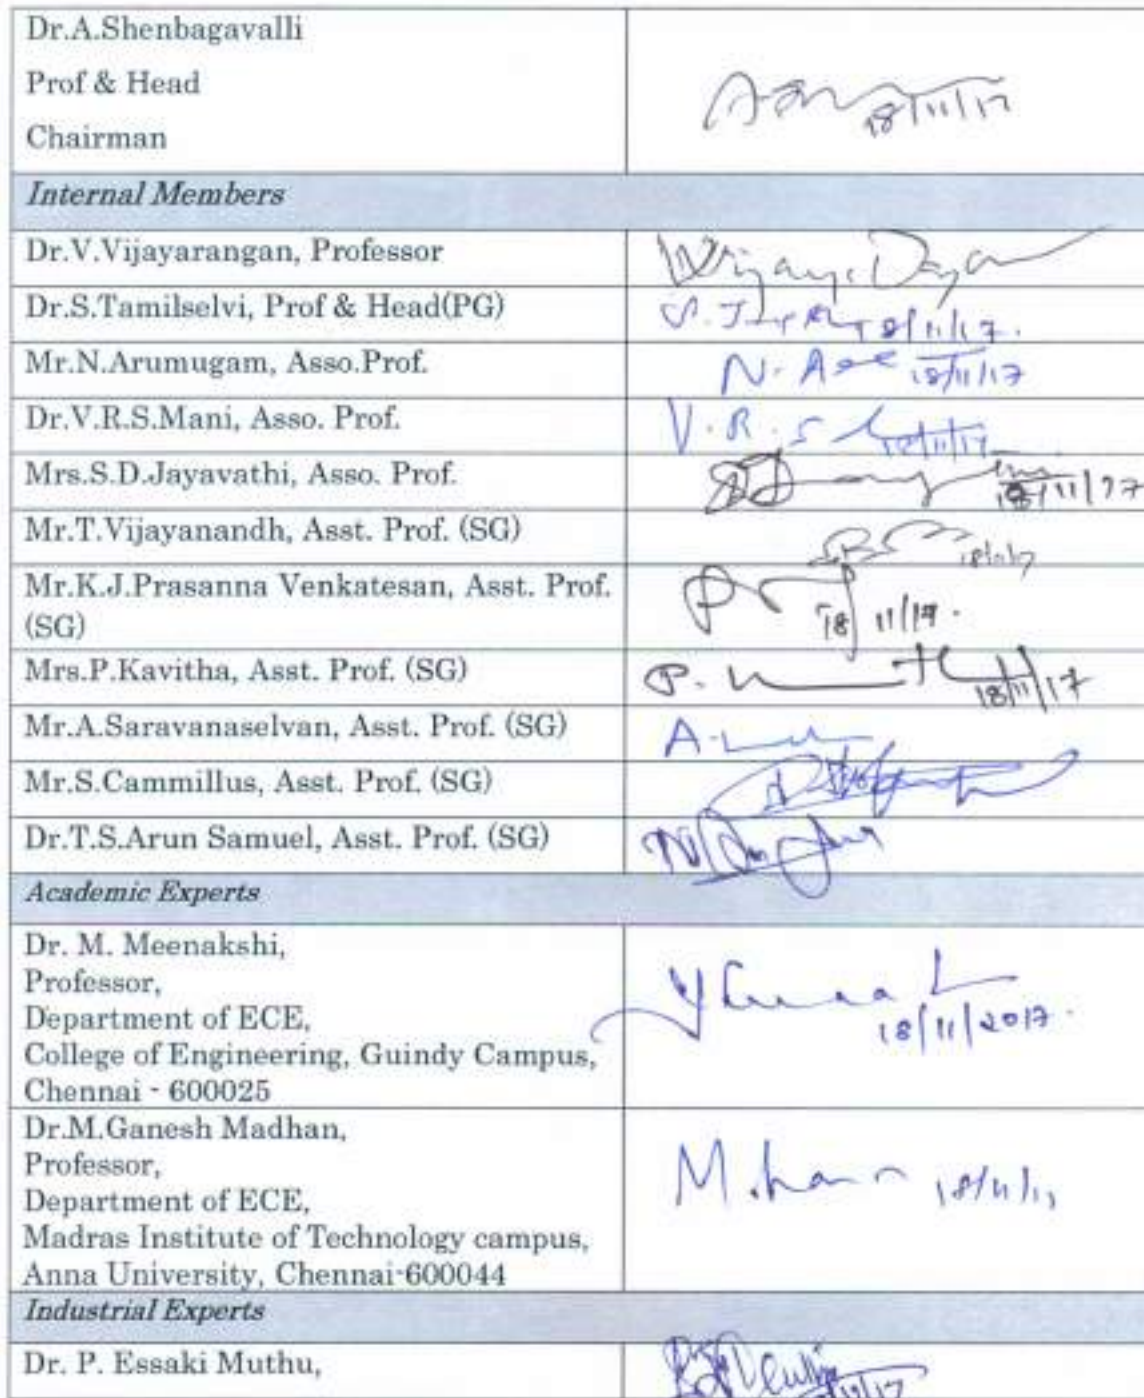 Dr.A.Shenbagavalli
Prof & Head
Chairman
18/11/17
Internal Members
Dr.V.Vijayarangan, Professor
Dr.S.Tamilselvi, Prof & Head(PG)
18/11/17.
Mr.N.Arumugam, Asso.Prof.
N. 18/11/17
Dr.V.R.S.Mani, Asso. Prof.
V.R.S 18/11/17
Mrs.S.D.Jayavathi, Asso. Prof.
18/11/17
Mr.T.Vijayanandh, Asst. Prof. (SG)
18/11/17
Mr.K.J.Prasanna Venkatesan, Asst. Prof.
(SG)
18/11/17.
Mrs.P.Kavitha, Asst. Prof. (SG)
P. 18/11/17
Mr.A.Saravanaselvan, Asst. Prof. (SG)
A.
Mr.S.Cammillus, Asst. Prof. (SG)
Dr.T.S.Arun Samuel, Asst. Prof. (SG)
Academic Experts
Dr. M. Meenakshi,
Professor,
Department of ECE,
College of Engineering, Guindy Campus,
Chennai - 600025
18/11/2017.
Dr.M.Ganesh Madhan,
Professor,
Department of ECE,
Madras Institute of Technology campus,
Anna University, Chennai-600044
18/11/17
Industrial Experts
Dr. P. Essaki Muthu,